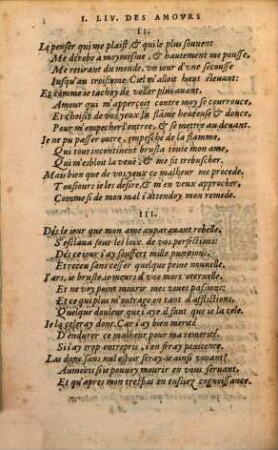 I. LIV. DES AMOVRS
II.
Le penser qui me plaist, & qui le plus souuent
Me dérobe à moymesme, & hautement me pousse,
Me retirant du monde, vn iour d'vne secousse
Iusqu'au troisieme Ciel m'alloit haut éleuant:
Et comme ie tachoy de voller plus auant,
Amour qui m'apperçoit contre moy se courrouce,
Et choisit de voz yeux vn flame heureuse & douce,
Pour m'empecher l'entree, & se mettre au deuant.
Ie ne pû passer outre, empesché de la flamme,
Qui tout incontinent brusla toute mon ame,
Qui m'esblouit la veuë, & me fit trebuscher.
Mais bien que de voz yeux ce malheur me procede,
Tousiours ie les desire, & m'en veux approcher,
Comme si de mon mal i'attendoy mon remede.
III.
Dés le iour que mon ame auparauant rebelle,
S'esclaua sous les loix de voz perfections:
Dés ce iour i'ay souffert mille punitions,
Et receu sans cesser quelque peine nouuelle.
I'ars, ie brusle, iemeurs d'vne mort eternelle,
Et ne voy point mourir mes vaines passions:
Et ce qui plus m'outrage en tant d'afflictions,
Quelque douleur que i'aye, il faut que ie la cele.
Ie la celeray donc. Car i'ay bien merité
D'endurer ce malheur pour ma temerité,
Si i'ay trop entrepris, i'en seray penitence.
Las donc sans nul espoir seray-ie ainsi viuant?
Aumoins si ie pouuoy mourir en vous seruant,
Et qu'apres mon trespas en eussiez cognoissance.